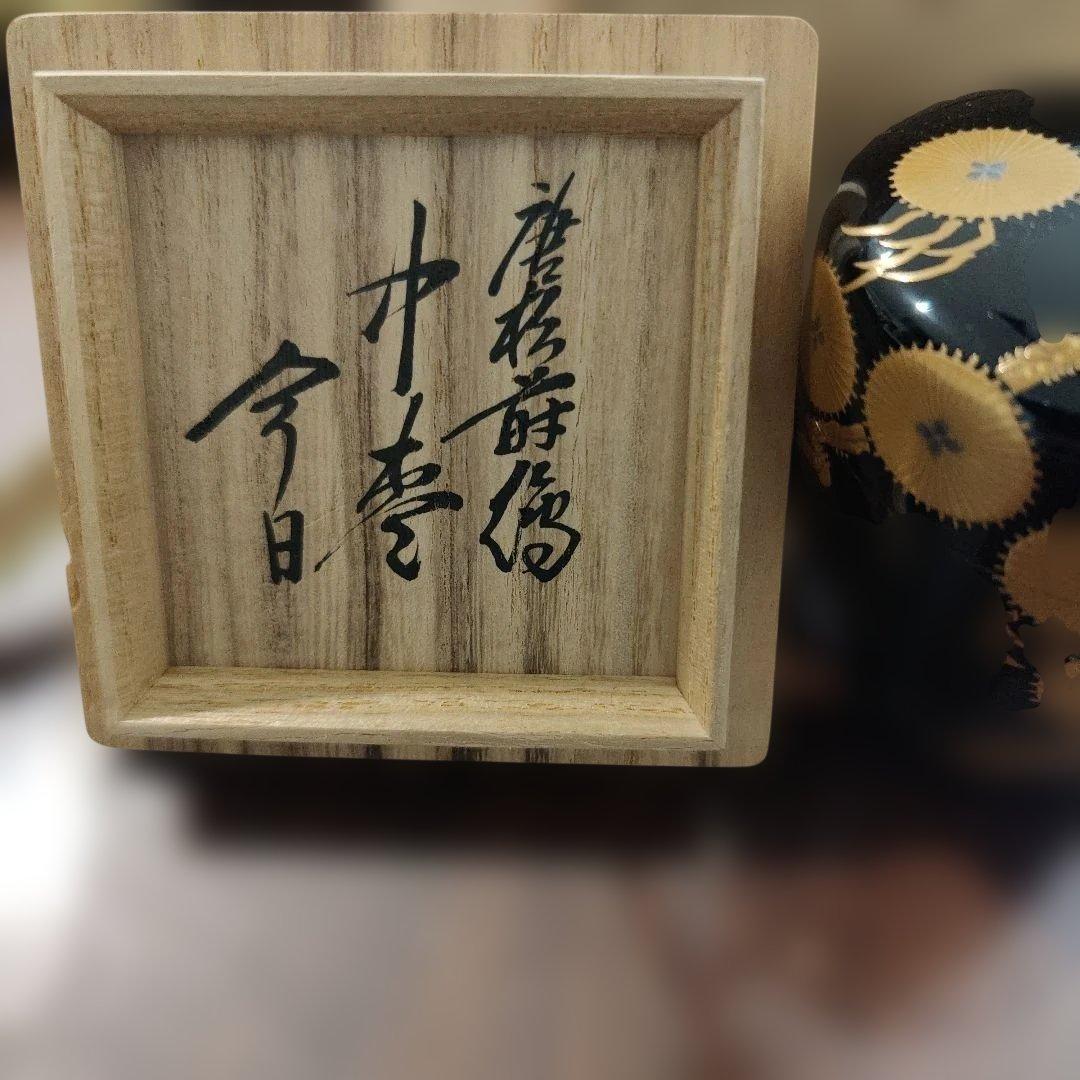 唐松蒔繪
中棗
今日